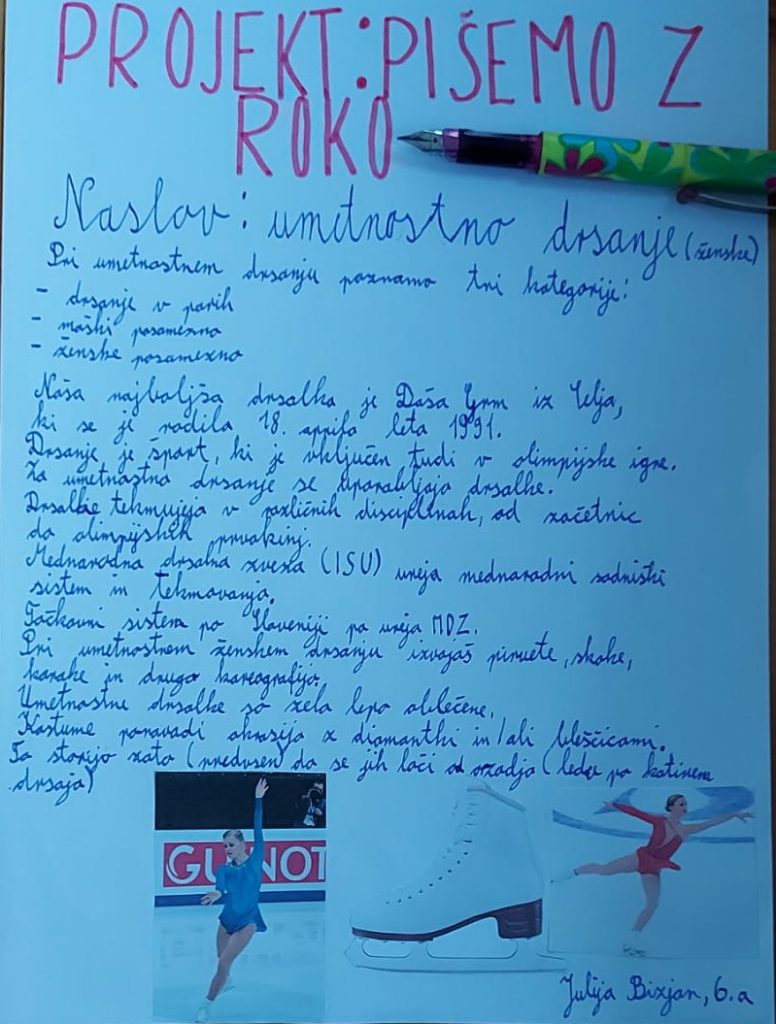 PROJEKT: PIŠEMO Z
ROKO
Naslov: umetnostno drsanje (ženske)
Pri umetnostnem drsanju poznamo tri kategorije:
- drsanje v parih
- moški posamezno
- ženske posamezno
Naša najboljša drsalka je Daša Grm iz Celja,
ki se je rodila 18. aprila leta 1991.
Drsanje je šport, ki je vključen tudi v olimpijske igre.
Za umetnostno drsanje se uporabljajo drsalke.
Drsalke tekmujejo v različnih disciplinah, od začetnic
do olimpijskih prvakinj.
Mednarodna drsalna zveza (ISU) ureja mednarodni sodniški
sistem in tekmovanja.
Točkovni sistem po Sloveniji pa ureja MDZ.
Pri umetnostnem ženskem drsanju izvajaš piruete, skoke,
korake in drugo koreografijo.
Umetnostne drsalke so zelo lepo oblečene.
Kostume ponavadi okrasijo z diamantki in/ali bleščicami.
To storijo zato (predvsem) da se jih loči od ozadja (ledu po katerem
drsajo)
GUINOT
Julija Bizjan, 6.a